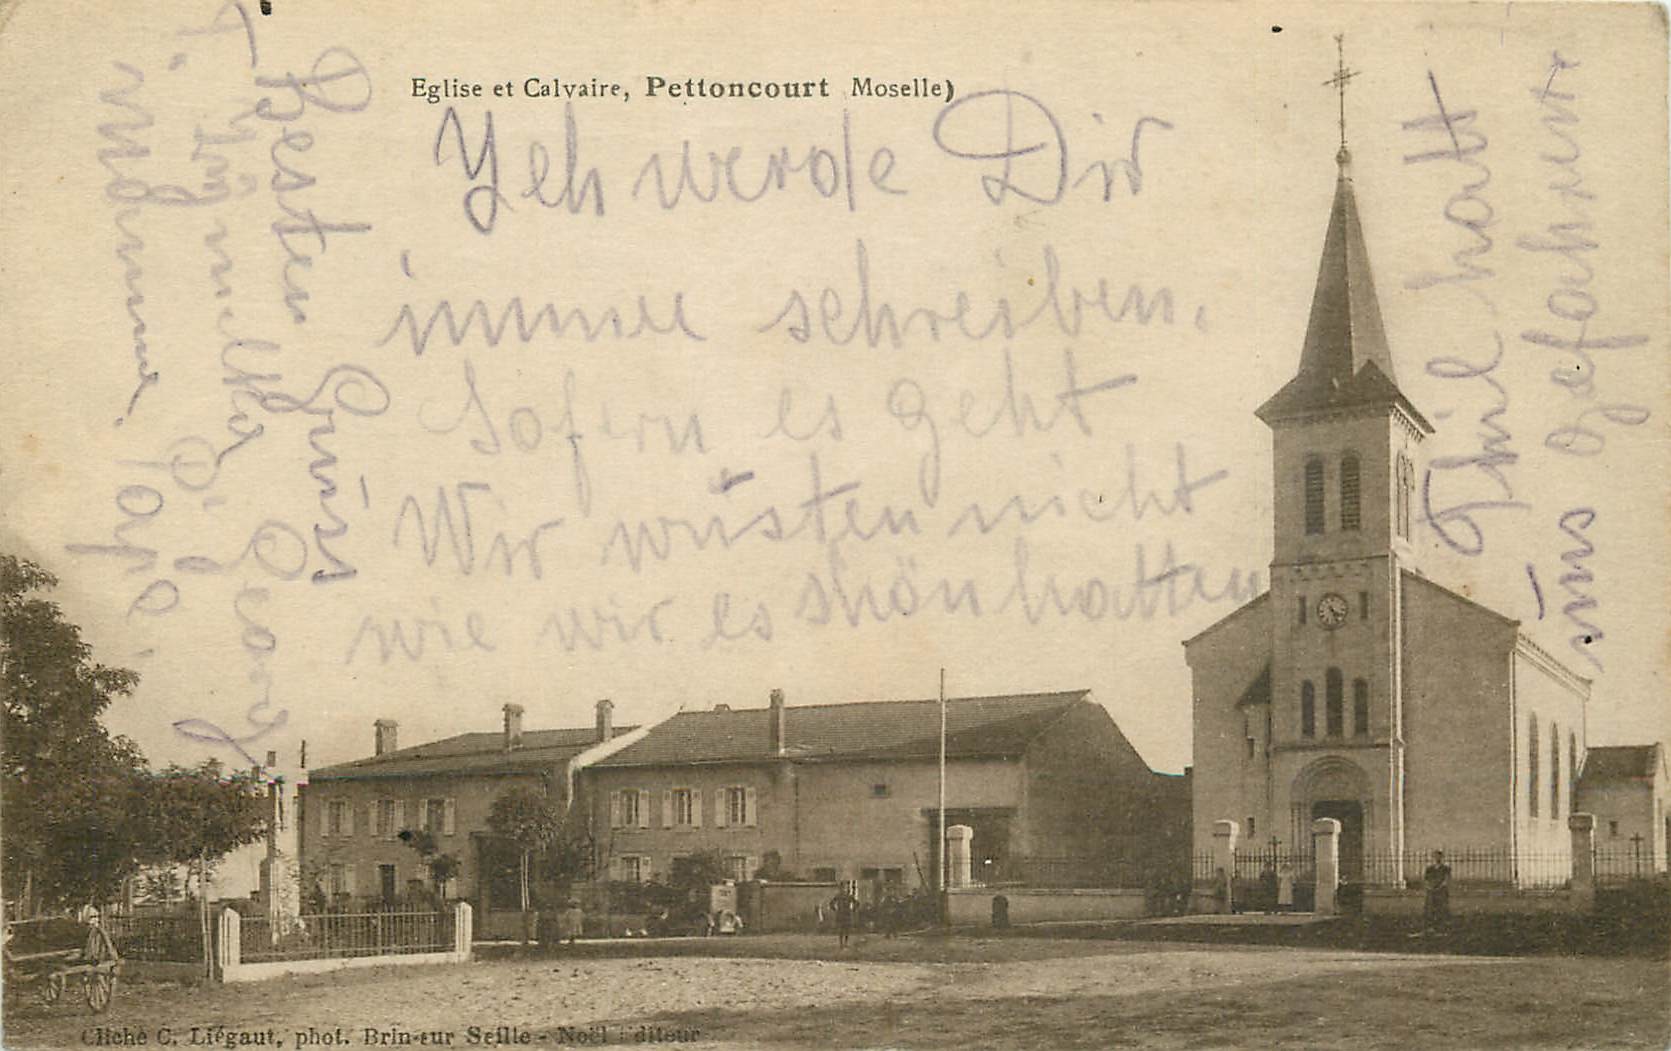 Eglise et Calvaire, Pettoncourt Moselle)
Ich werde Dir
immer schreiben.
Sofern es geht
Wir wüsten nicht
wie wir es shön hatten
Thil hatt
uns gefahren
Besten Grüss
Georg
Mamme Papa
Cliché C. Liégaut, phot. Brin-sur Seille - Noël Editeur